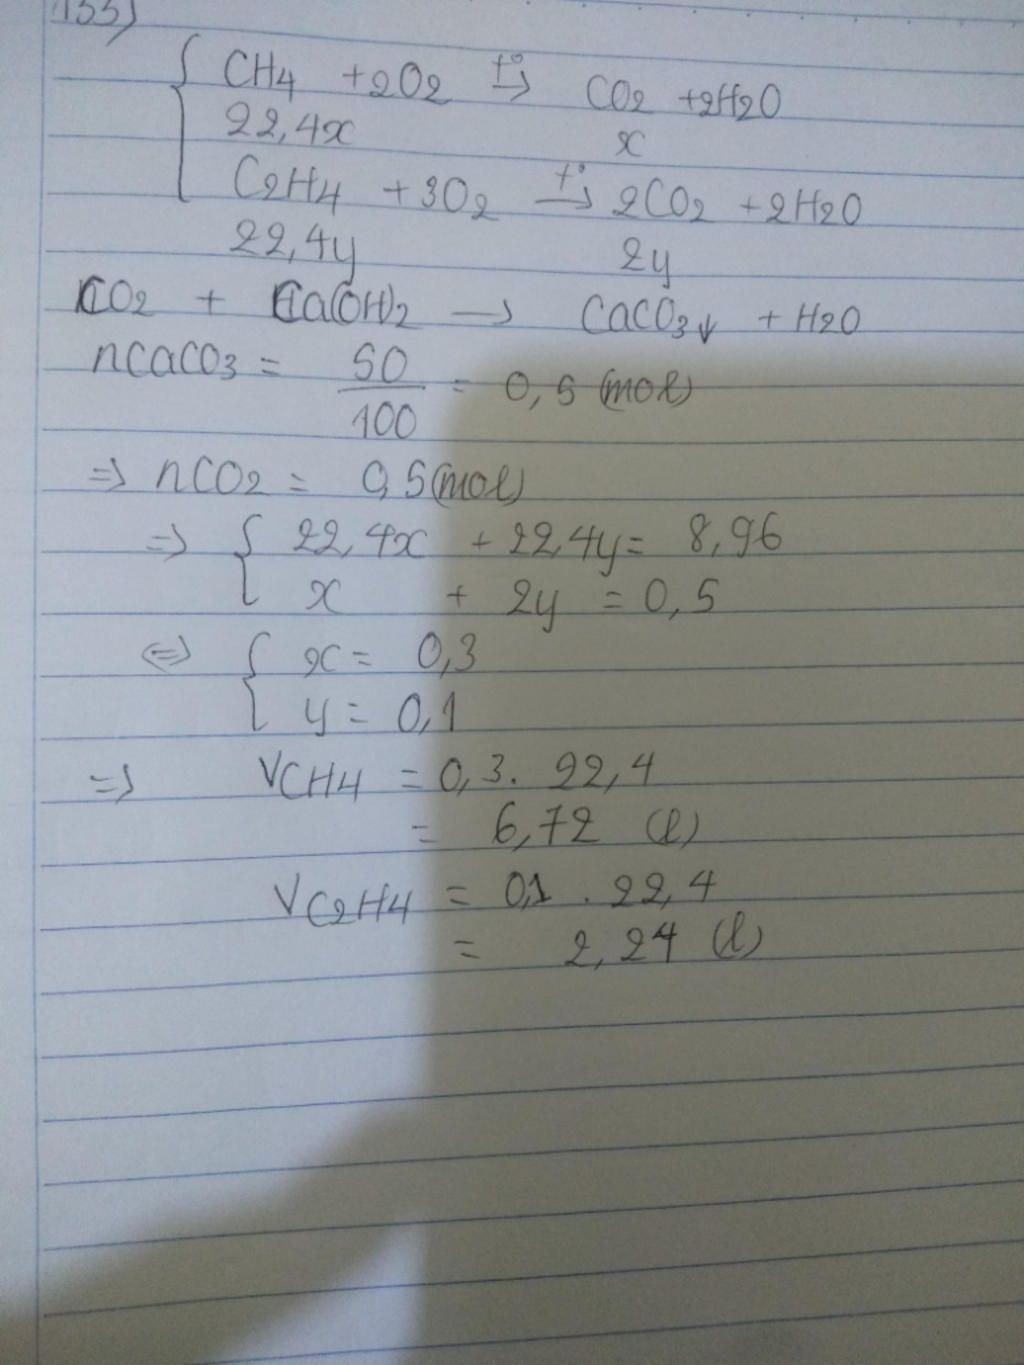 133)
CH4 +2O2 t°→ CO2 +2H2O
22,4x x
C2H4 +3O2 t°→ 2CO2 +2H2O
22,4y 2y
CO2 + Ca(OH)2 → CaCO3↓ + H2O
nCaCO3 = 50/100 = 0,5 (mol)
=> nCO2 = 0,5(mol)
=> { 22,4x + 22,4y = 8,96
x + 2y = 0,5
<=> { x = 0,3
y = 0,1
=> VCH4 = 0,3. 22,4
= 6,72 (l)
VC2H4 = 0,1 . 22,4
= 2,24 (l)